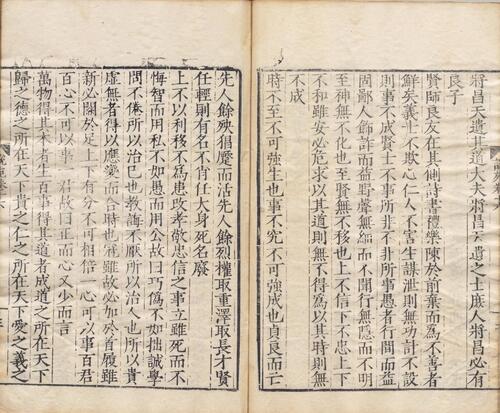 將昌天遺其道大夫將昌天遺之士庶人將昌必有
良子
賢師良友在其側詩書禮樂陳於前棄而為不善者
鮮矣義士不欺心仁人不害生謀泄則無功計不設
則事不成賢士不事所非不非所事愚者行間而益
固鄙人飾詐而益野聲無細而不聞行無隱而不明
至神無不化也至賢無不移也上不信下不忠上下
不和雖安必危求以其道則無不得為以其時則無
不成
時不至不可強生也事不究不可強成也貞良而亡
先人餘殃猖蹶而活先人餘烈權取重澤取長才賢
任輕則有名不肖任大身死名廢
士不以利移不為患改孝敬忠信之事立雖死而不
悔智而用私不如愚而用公故曰巧偽不如拙誠學
問不倦所以治己也教誨不厭所以治人也所以貴
虛無者得以應變而合時也冠雖故必加於首履雖
新必關於足上下有分不可相倍一心可以事百君
百心不可以事一君故曰正而心又少而言
萬物得其本者生百事得其道者成道之所在天下
歸之德之所在天下貴之仁之所在天下愛之義之